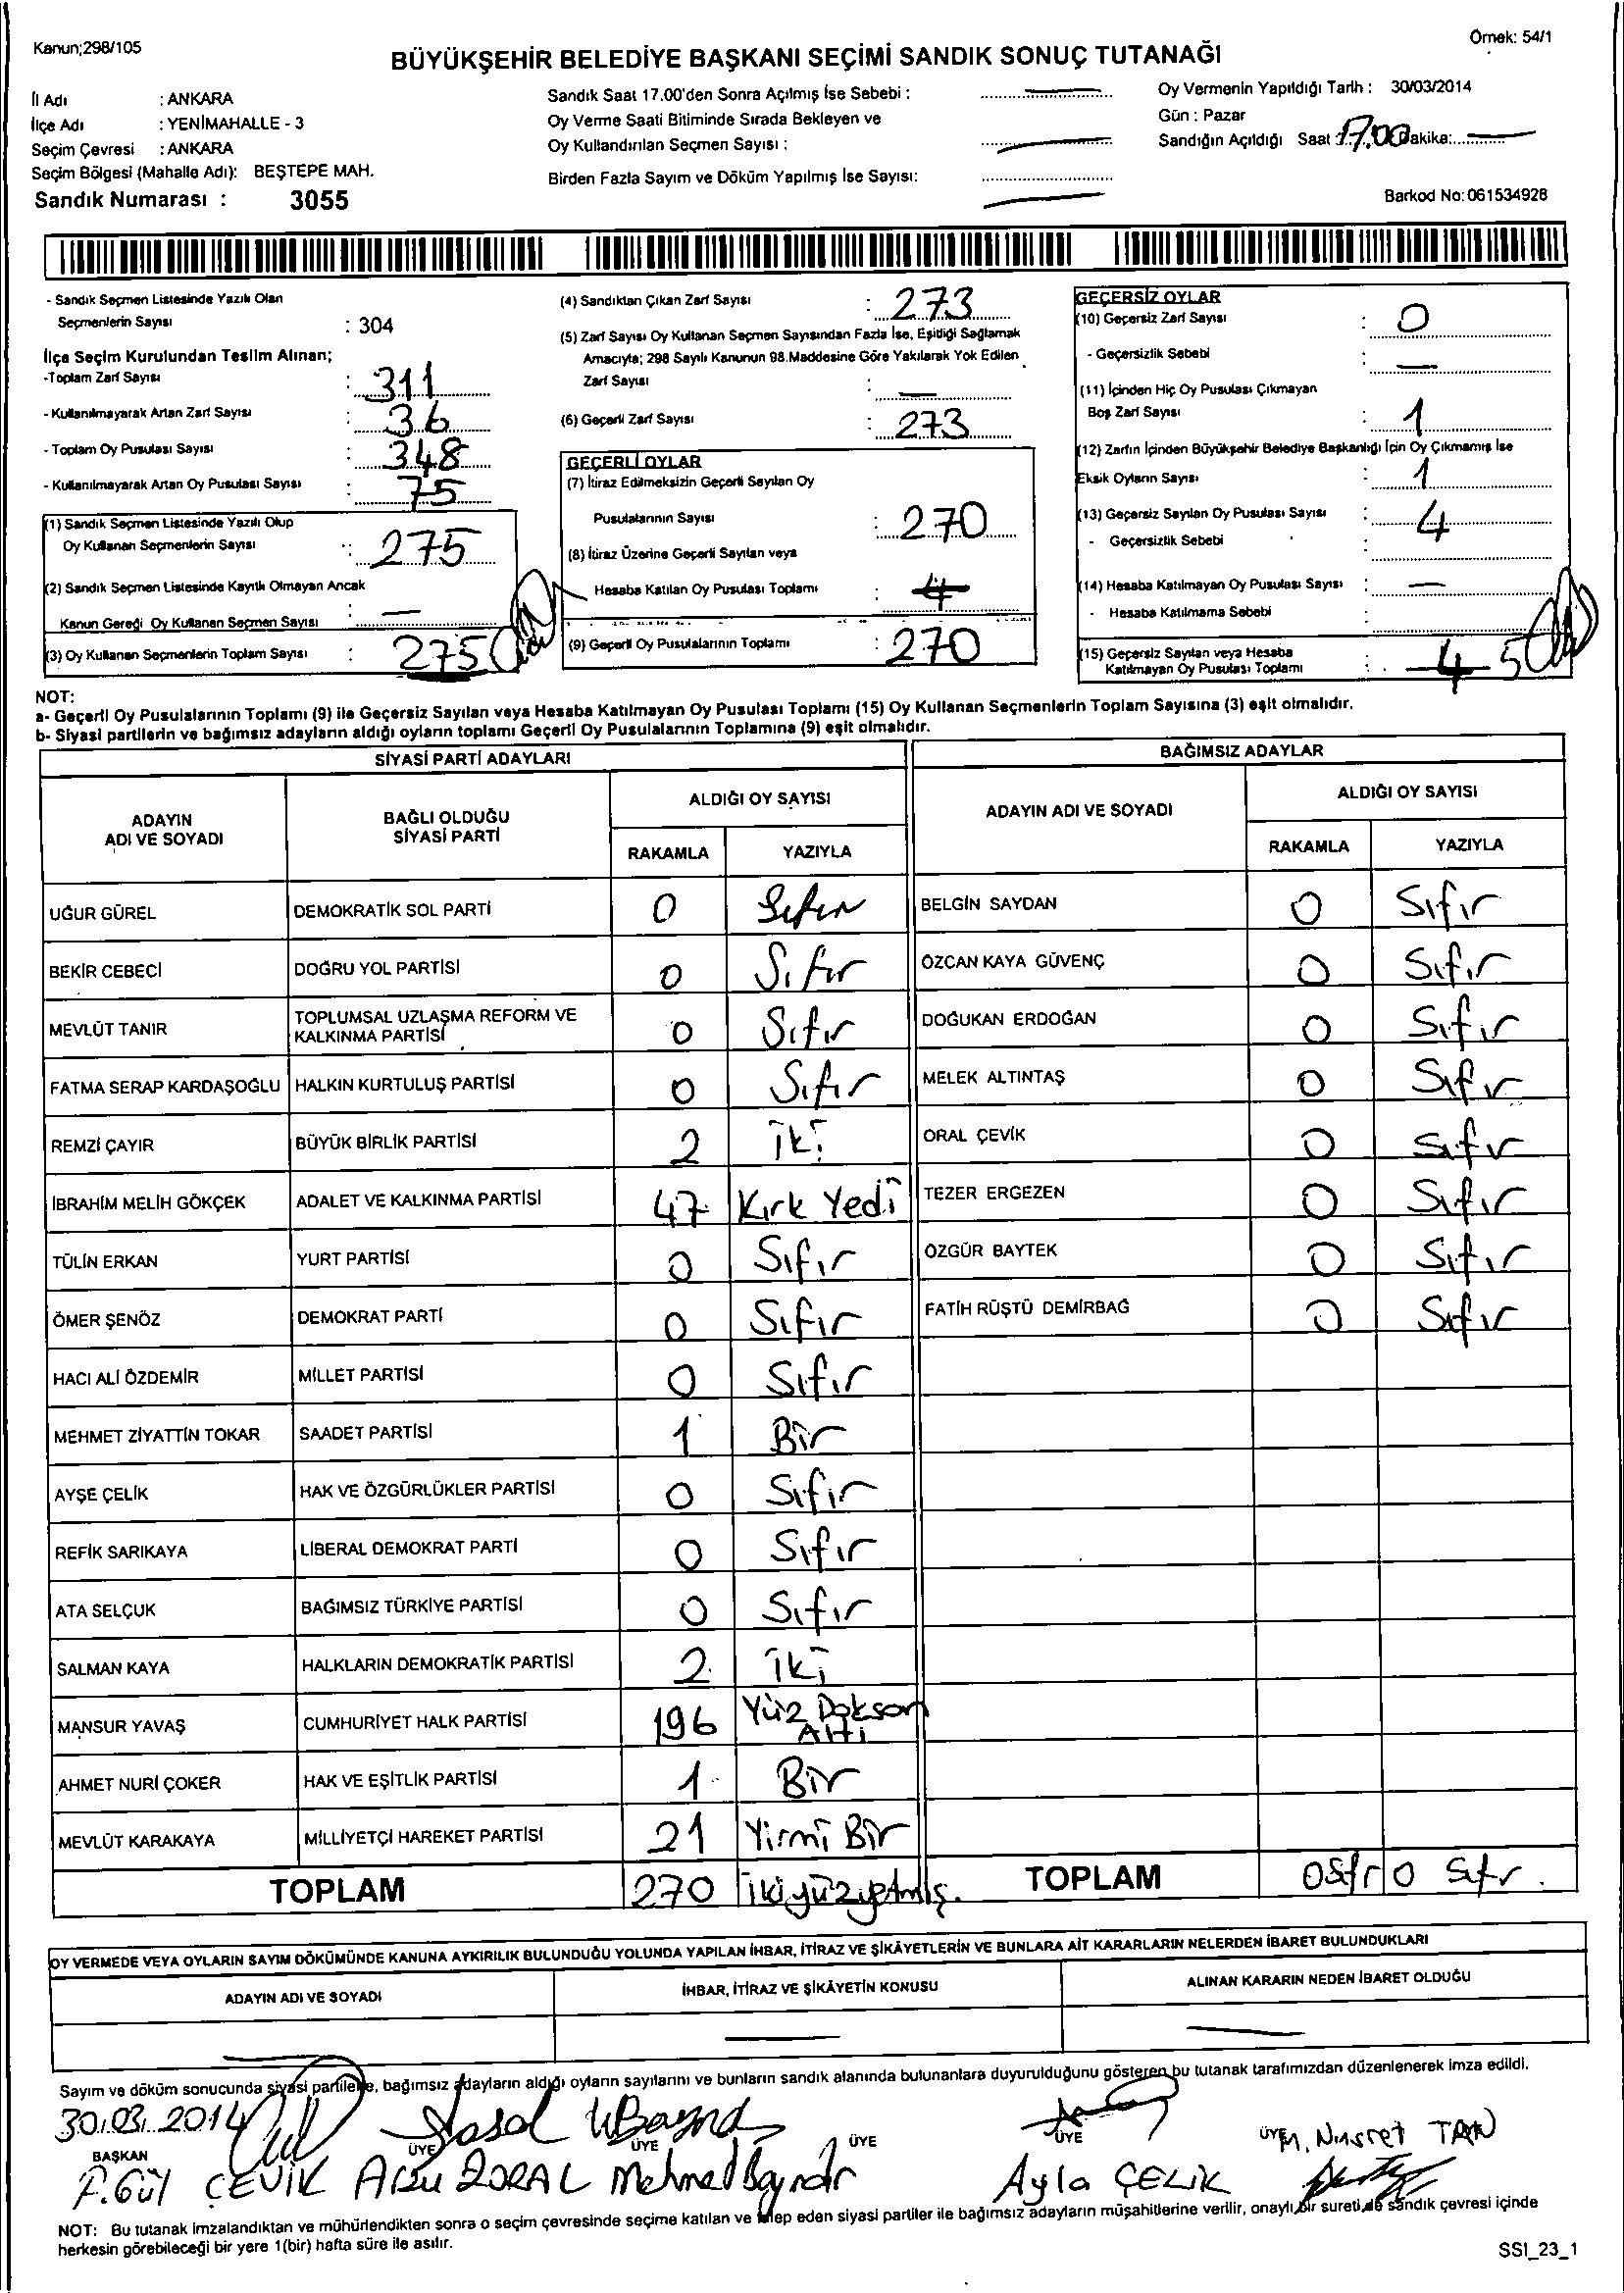 Kanun;298/105
Örnek: 54/1
BÜYÜKŞEHİR BELEDİYE BAŞKANI SEÇİMİ SANDIK SONUÇ TUTANAĞI
İl Adı : ANKARA
İlçe Adı : YENİMAHALLE - 3
Seçim Çevresi : ANKARA
Seçim Bölgesi (Mahalle Adı): BEŞTEPE MAH.
Sandık Numarası : 3055
Sandık Saat 17.00'den Sonra Açılmış İse Sebebi :
Oy Verme Saati Bitiminde Sırada Bekleyen ve
Oy Kullandırılan Seçmen Sayısı :
Birden Fazla Sayım ve Döküm Yapılmış İse Sayısı:
Oy Vermenin Yapıldığı Tarih : 30/03/2014
Gün : Pazar
Sandığın Açıldığı Saat 17.00 Dakika:
Barkod No: 061534928
- Sandık Seçmen Listesinde Yazılı Olan
Seçmenlerin Sayısı : 304
İlçe Seçim Kurulundan Teslim Alınan;
-Toplam Zarf Sayısı : 311
- Kullanılmayarak Artan Zarf Sayısı : 36
- Toplam Oy Pusulası Sayısı : 348
- Kullanılmayarak Artan Oy Pusulası Sayısı : 75
(1) Sandık Seçmen Listesinde Yazılı Olup
Oy Kullanan Seçmenlerin Sayısı : 275
(2) Sandık Seçmen Listesinde Kayıtlı Olmayan Ancak
Kanun Gereği Oy Kullanan Seçmen Sayısı : —
(3) Oy Kullanan Seçmenlerin Toplam Sayısı : 275
(4) Sandıktan Çıkan Zarf Sayısı : 273
(5) Zarf Sayısı Oy Kullanan Seçmen Sayısından Fazla İse, Eşitliği Sağlamak
Amacıyla; 298 Sayılı Kanunun 98.Maddesine Göre Yakılarak Yok Edilen
Zarf Sayısı : —
(6) Geçerli Zarf Sayısı : 273
GEÇERLİ OYLAR
(7) İtiraz Edilmeksizin Geçerli Sayılan Oy
Pusulalarının Sayısı : 270
(8) İtiraz Üzerine Geçerli Sayılan veya
Hesaba Katılan Oy Pusulası Toplamı : 4
(9) Geçerli Oy Pusulalarının Toplamı : 270
GEÇERSİZ OYLAR
(10) Geçersiz Zarf Sayısı : 0
- Geçersizlik Sebebi : —
(11) İçinden Hiç Oy Pusulası Çıkmayan
Boş Zarf Sayısı : 1
(12) Zarfın İçinden Büyükşehir Belediye Başkanlığı İçin Oy Çıkmamış İse
Eksik Oyların Sayısı : 1
(13) Geçersiz Sayılan Oy Pusulası Sayısı : 4
- Geçersizlik Sebebi :
(14) Hesaba Katılmayan Oy Pusulası Sayısı : —
- Hesaba Katılmama Sebebi :
(15) Geçersiz Sayılan veya Hesaba
Katılmayan Oy Pusulası Toplamı : 4 5
NOT:
a- Geçerli Oy Pusulalarının Toplamı (9) ile Geçersiz Sayılan veya Hesaba Katılmayan Oy Pusulası Toplamı (15) Oy Kullanan Seçmenlerin Toplam Sayısına (3) eşit olmalıdır.
b- Siyasi partilerin ve bağımsız adayların aldığı oyların toplamı Geçerli Oy Pusulalarının Toplamına (9) eşit olmalıdır.
SİYASİ PARTİ ADAYLARI
ADAYIN ADI VE SOYADI
BAĞLI OLDUĞU SİYASİ PARTİ
ALDIĞI OY SAYISI
RAKAMLA YAZIYLA
UĞUR GÜREL DEMOKRATİK SOL PARTİ 0 Sıfır
BEKİR CEBECİ DOĞRU YOL PARTİSİ 0 Sıfır
MEVLÜT TANIR TOPLUMSAL UZLAŞMA REFORM VE KALKINMA PARTİSİ 0 Sıfır
FATMA SERAP KARDAŞOĞLU HALKIN KURTULUŞ PARTİSİ 0 Sıfır
REMZİ ÇAYIR BÜYÜK BİRLİK PARTİSİ 2 iki
İBRAHİM MELİH GÖKÇEK ADALET VE KALKINMA PARTİSİ 47 Kırk Yedi
TÜLİN ERKAN YURT PARTİSİ 0 Sıfır
ÖMER ŞENÖZ DEMOKRAT PARTİ 0 Sıfır
HACI ALİ ÖZDEMİR MİLLET PARTİSİ 0 Sıfır
MEHMET ZİYATTİN TOKAR SAADET PARTİSİ 1 Bir
AYŞE ÇELİK HAK VE ÖZGÜRLÜKLER PARTİSİ 0 Sıfır
REFİK SARIKAYA LİBERAL DEMOKRAT PARTİ 0 Sıfır
ATA SELÇUK BAĞIMSIZ TÜRKİYE PARTİSİ 0 Sıfır
SALMAN KAYA HALKLARIN DEMOKRATİK PARTİSİ 2 iki
MANSUR YAVAŞ CUMHURİYET HALK PARTİSİ 196 Yüz Doksan Altı
AHMET NURİ ÇOKER HAK VE EŞİTLİK PARTİSİ 1 Bir
MEVLÜT KARAKAYA MİLLİYETÇİ HAREKET PARTİSİ 21 Yirmi Bir
TOPLAM 270 ikiyüzyetmiş.
BAĞIMSIZ ADAYLAR
ADAYIN ADI VE SOYADI
ALDIĞI OY SAYISI
RAKAMLA YAZIYLA
BELGİN SAYDAN 0 Sıfır
ÖZCAN KAYA GÜVENÇ 0 Sıfır
DOĞUKAN ERDOĞAN 0 Sıfır
MELEK ALTINTAŞ 0 Sıfır
ORAL ÇEVİK 0 Sıfır
TEZER ERGEZEN 0 Sıfır
ÖZGÜR BAYTEK 0 Sıfır
FATİH RÜŞTÜ DEMİRBAĞ 0 Sıfır
TOPLAM 0 Sıfır 0 Sıfır.
OY VERMEDE VEYA OYLARIN SAYIM DÖKÜMÜNDE KANUNA AYKIRILIK BULUNDUĞU YOLUNDA YAPILAN İHBAR, İTİRAZ VE ŞİKÂYETLERİN VE BUNLARA AİT KARARLARIN NELERDEN İBARET BULUNDUKLARI
ADAYIN ADI VE SOYADI İHBAR, İTİRAZ VE ŞİKÂYETİN KONUSU ALINAN KARARIN NEDEN İBARET OLDUĞU
Sayım ve döküm sonucunda siyasi partilere, bağımsız adayların aldığı oyların sayılarını ve bunların sandık alanında bulunanlara duyurulduğunu gösteren bu tutanak tarafımızdan düzenlenerek imza edildi.
30.03.2014
BAŞKAN ÜYE ÜYE ÜYE ÜYE ÜYE
M. Nusret TAN
F.Gül ÇEVİK Arzu ZORAL Mehmed Bayındır Ayla ÇELİK
NOT: Bu tutanak imzalandıktan ve mühürlendikten sonra o seçim çevresinde seçime katılan ve talep eden siyasi partiler ile bağımsız adayların müşahitlerine verilir, onaylı bir sureti de sandık çevresi içinde
herkesin görebileceği bir yere 1(bir) hafta süre ile asılır.
SSI_23_1